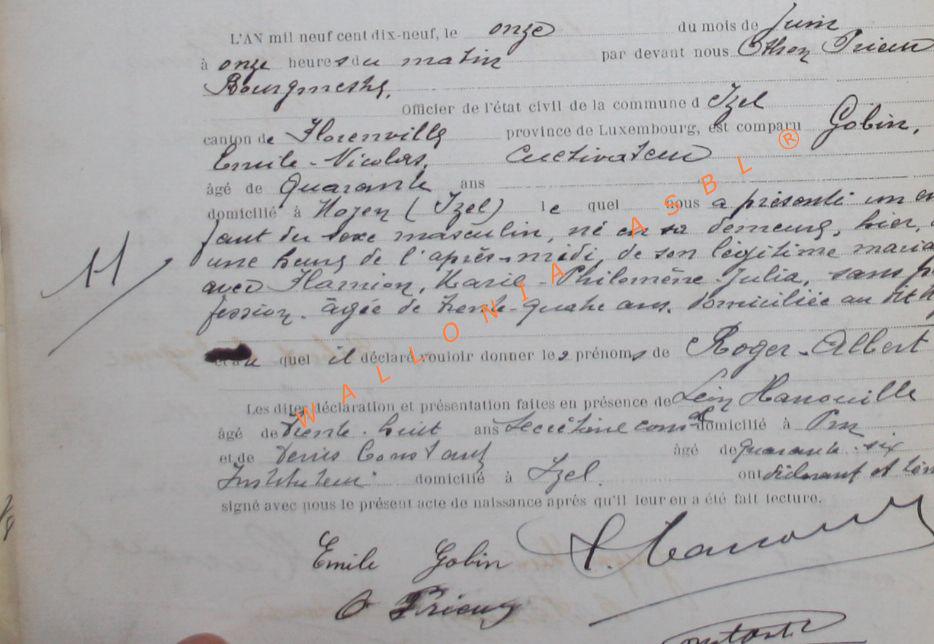 L'AN mil neuf cent dix-neuf, le onze du mois de Juin
à onze heures du matin par devant nous Othon Prieur
Bourgmestre,
Officier de l'état civil de la commune d Izel
canton de Florenville province de Luxembourg, est comparu Gobin,
Emile-Nicolas, Cultivateur
âgé de Quarante ans
domicilié à Moyen (Izel) le quel nous a présenté un en
fant du sexe masculin, né en sa demeure, hier,
une heure de l'après-midi, de son légitime maria
avec Hamion, Marie-Philomène-Julia, sans pr
fession. âgée de trente-quatre ans. domiciliée au dit
11
et au quel il déclaré vouloir donner les prénoms de Roger-Albert
Les dites déclaration et présentation faites en présence de Léon Hanouille
âgé de Trente-huit ans Secrétaire comal domicilié à Pin
et de Denis Constant âgé de quarante-six
Instituteur domicilié à Izel. ont déclarant et tém
signé avec nous le présent acte de naissance après qu'il leur en a été fait lecture.
Emile Gobin
O Prieur
WALLONIA ASBL ®